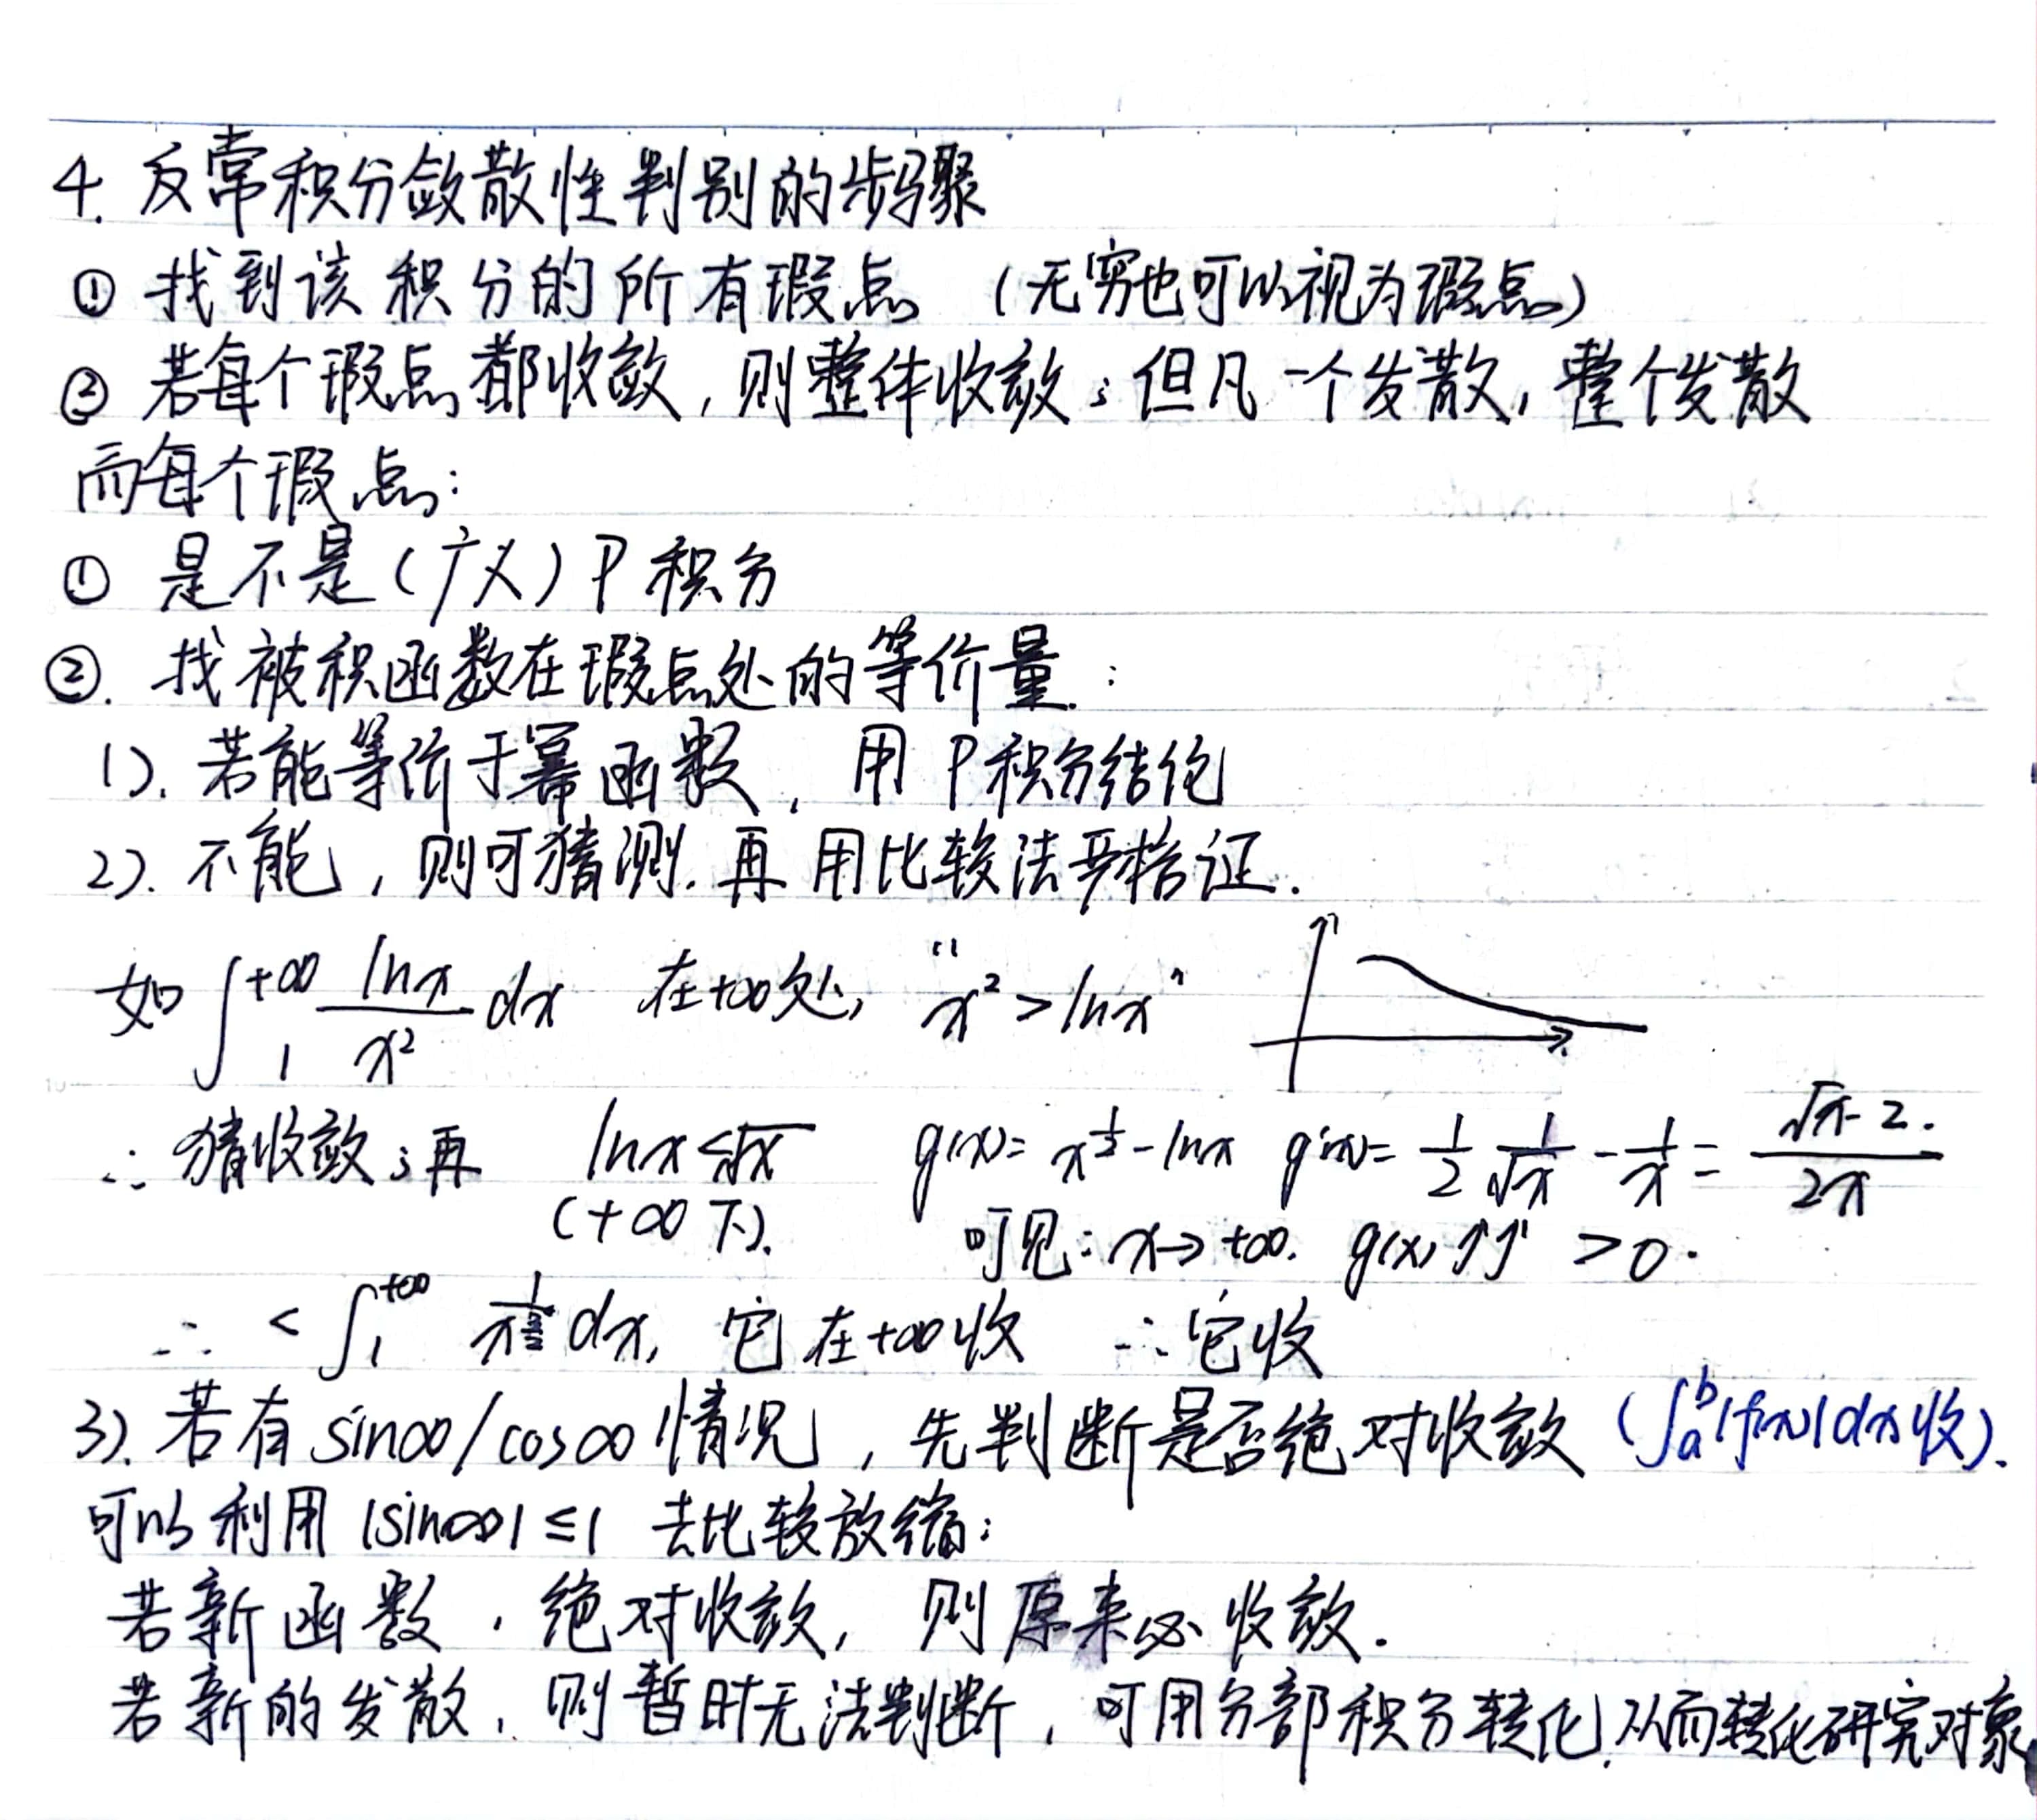 4. 反常积分敛散性判别的步骤
① 找到该积分的所有瑕点 (无穷也可以视为瑕点)
② 若每个瑕点都收敛, 则整体收敛; 但凡一个发散, 整个发散
而每个瑕点:
① 是不是(广义) P 积分
②. 找被积函数在瑕点处的等价量:
1). 若能等价于幂函数, 用 P积分结论
2). 不能, 则可猜测. 再用比较法严格证.
如 ∫₁^{+∞} lnx/x² dx 在+∞处, "x² > lnx"
∴ 猜收敛; 再 lnx < √x g(x) = x^{1/2} - lnx g'(x) = 1/2 · 1/√x - 1/x = (√x - 2)/2x.
(+∞下). 可见: x→+∞. g(x)↗ > 0.
∴ < ∫₁^{+∞} 1/x^{3/2} dx, 它在+∞收 ∴ 它收
3). 若有 sin∞/cos∞ 情况, 先判断是否绝对收敛 (∫ₐᵇ|f(x)|dx收).
可以利用 |sin∞| ≤ 1 去比较放缩:
若新函数, 绝对收敛, 则原来必收敛.
若新的发散, 则暂时无法判断, 可用分部积分转化, 从而转化研究对象